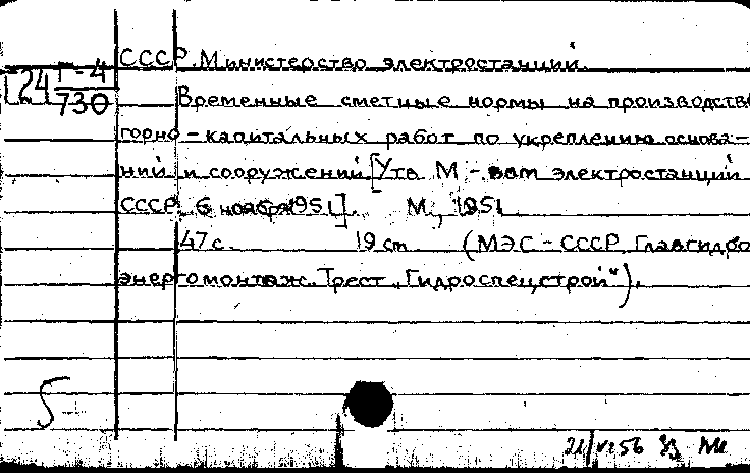 СССР. Министерство электростанций.
Г-4
24
730
Временные сметные нормы на производство
горно-капитальных работ по укреплению основа-
ний и сооружений [Утв. М-вом электростанций
СССР. 6 ноября 1951]. М., 1951
47 с. 19 см (МЭС-СССР. Главгидро
энергомонтаж. Трест „Гидроспецстрой").
5
21/VI 56